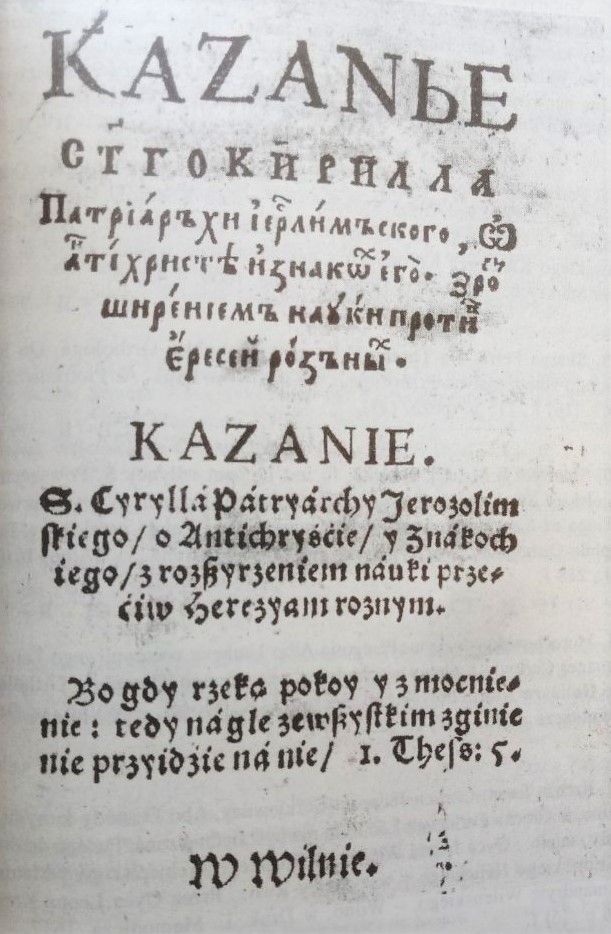 KAZANЬE
СТ҃ГО КИРИЛЛА
Патрїáръхи їерл҃имъского, Ѿ
а҆нтїхристѣ и҆ знакоⷯ є҆го̀. Зро
ширéнїемъ наꙋ́ки проти́
Є҆ресей рóзъныⷯ.
KAZANIE.
S. Cyryllá Pátryárchy Jerozolim
ſkiego/ o Antichryśćie/ y Znákoch
iego/ z rozßyrzeniem náuki prze⸗
ćiw Herezyam roznym.
Bo gdy rzeką pokoy y zmocnie⸗
nie: tedy nágle zewßyſtkim zginie
nie przyidzie ná nie/ 1. Theſs: 5.
W Wilnie.